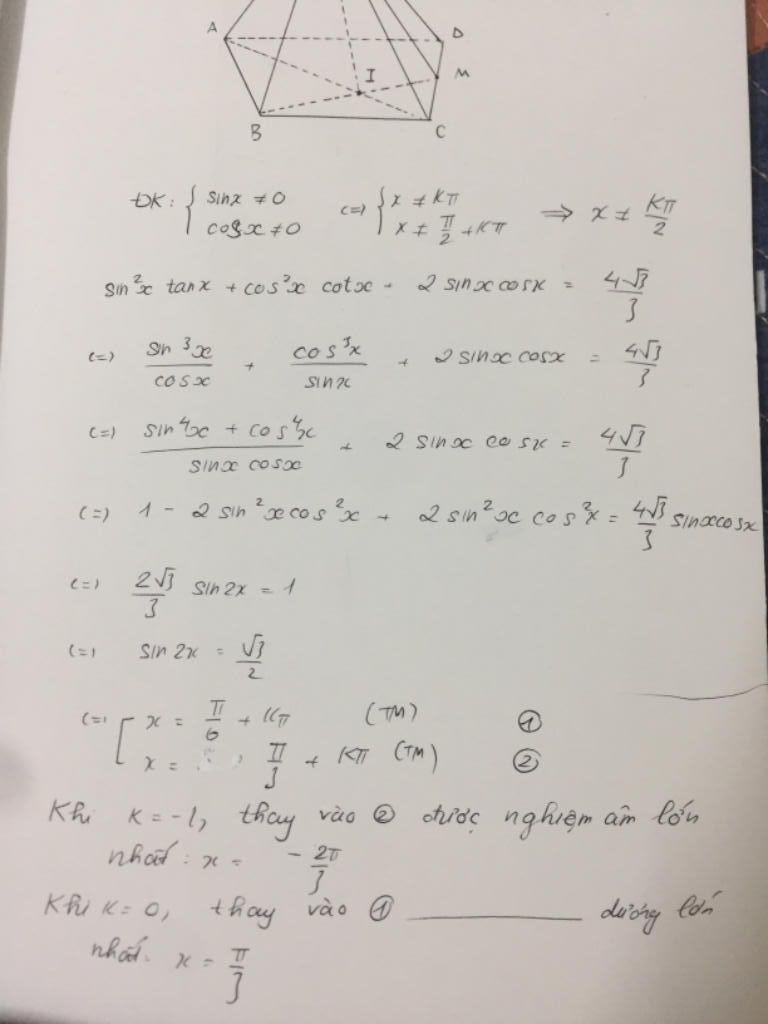 A
D
I
M
B
C
ĐK: { sinx ≠ 0 (=) { x ≠ Kπ => x ≠ Kπ/2
cosx ≠ 0 x ≠ π/2 + Kπ
sin²x tanx + cos²x cotx + 2 sinx cosx = 4√3/3
(=) sin³x/cosx + cos³x/sinx + 2 sinx cosx = 4√3/3
(=) (sin⁴x + cos⁴x)/(sinx cosx) + 2 sinx cosx = 4√3/3
(=) 1 - 2 sin²x cos²x + 2 sin²x cos²x = 4√3/3 sinxcosx
(=) 2√3/3 sin2x = 1
(=) sin 2x = √3/2
(=) [ x = π/6 + Kπ (TM) ①
x = π/3 + Kπ (TM) ②
Khi K = -1, thay vào ② được nghiệm âm lớn
nhất: x = - 2π/3
Khi K = 0, thay vào ① ________ dương lớn
nhất. x = π/3